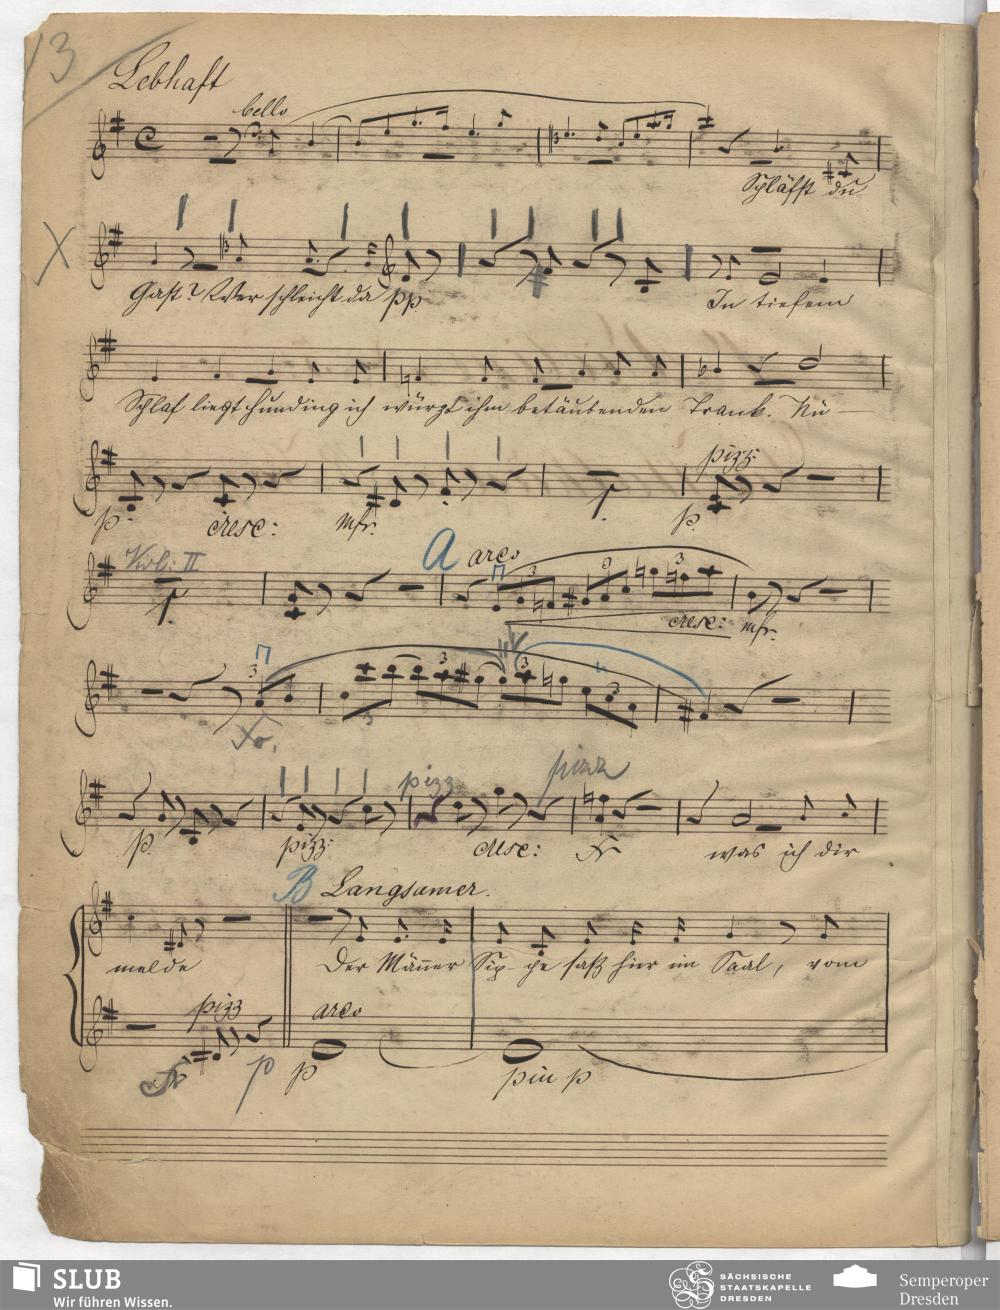 13
Lebhaft
Cello
Schläfst du
X
Gast? Wer schleicht da pp In tiefem
Schlaf liegt Hunding ich würzt ihm betäubenden Trank. Nü —
pizz:
p. cresc: mfr. p.
Viol: II A arco
3 3 3
cresc: mfr.
3 3 3 3
3
pizz pizz
p. pizz: cresc: fr was ich dir
B Langsamer.
melde Der Männer Sip-pe saß hier im Saal, vom
pizz arco
fr p p piu p
SLUB
Wir führen Wissen.
SÄCHSISCHE
STAATSKAPELLE
DRESDEN
Semperoper
Dresden